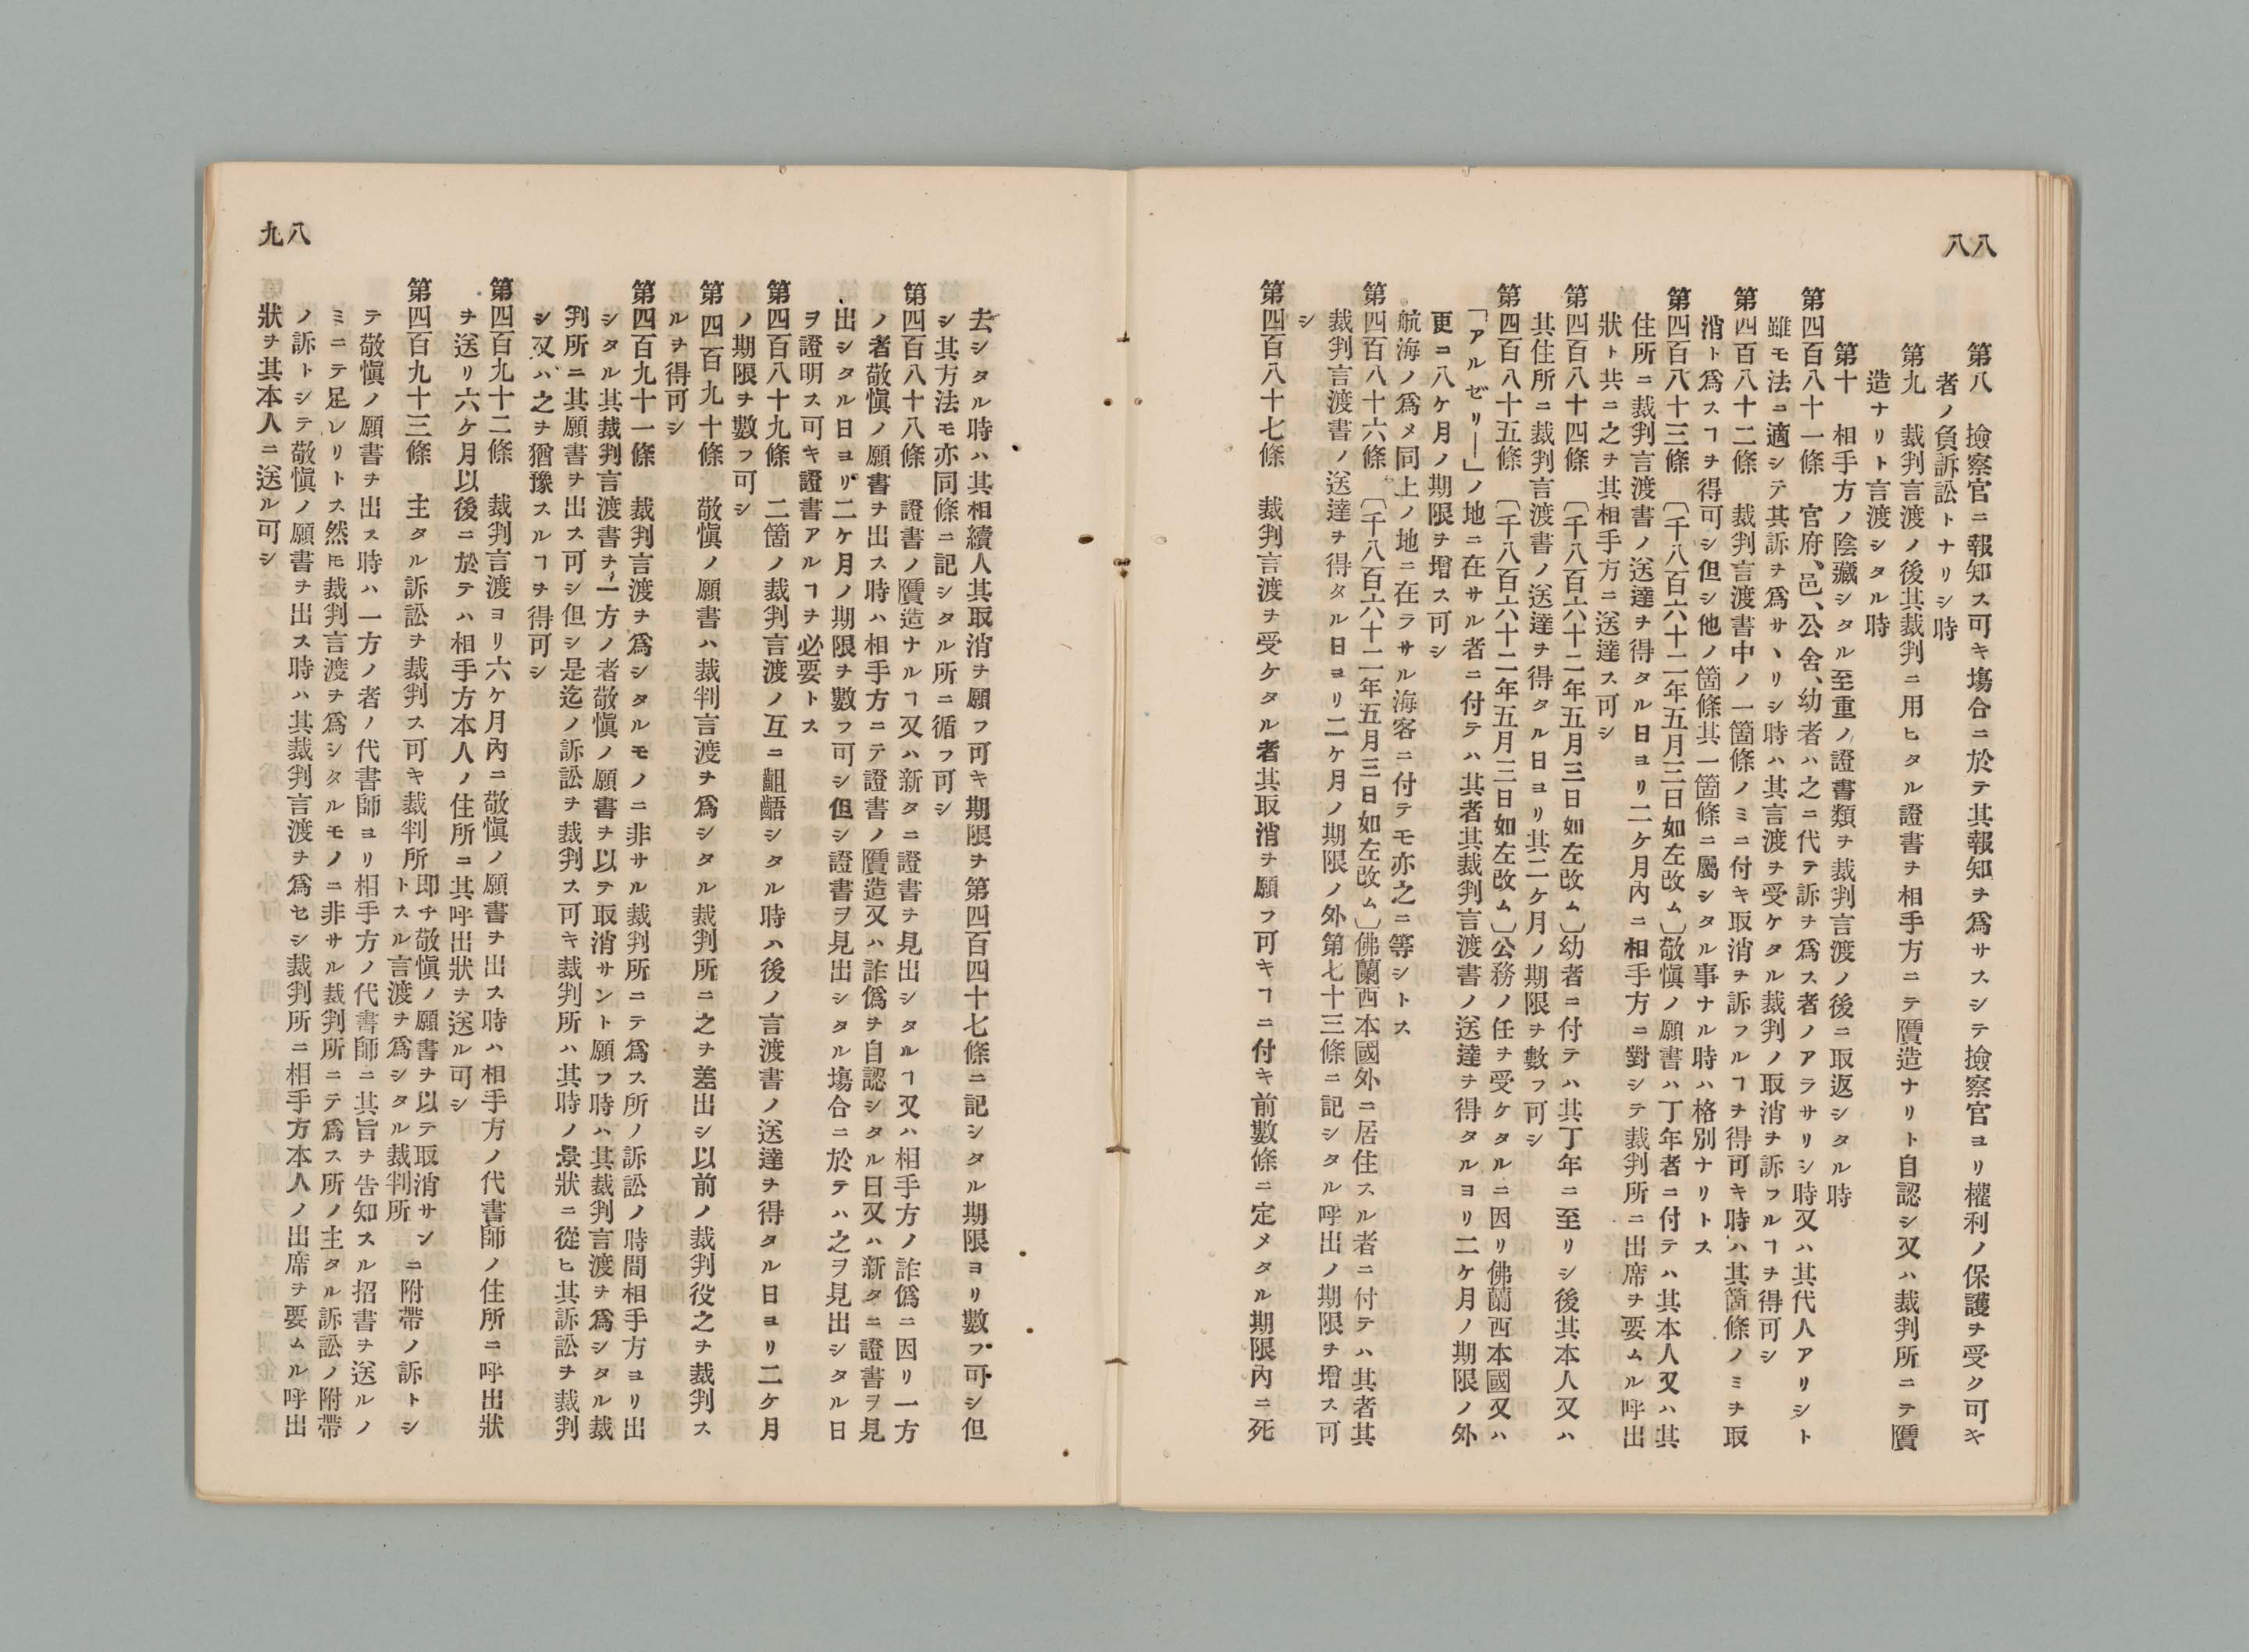 八八
第八　撿察官ニ報知ス可キ塲合ニ於テ其報知ヲ爲サスシテ撿察官ヨリ權利ノ保護ヲ受ク可キ
者ノ負訴訟トナリシ時
第九　裁判言渡ノ後其裁判ニ用ヒタル證書ヲ相手方ニテ贋造ナリト自認シ又ハ裁判所ニテ贋
造ナリト言渡シタル時
第十　相手方ノ陰藏シタル至重ノ證書類ヲ裁判言渡ノ後ニ取返シタル時
第四百八十一條　官府、邑、公舍、幼者ハ之ニ代テ訴ヲ爲ス者ノアラサリシ時又ハ其代人アリシト
雖モ法ニ適シテ其訴ヲ爲サヽリシ時ハ其言渡ヲ受ケタル裁判ノ取消ヲ訴フルヿヲ得可シ
第四百八十二條　裁判言渡書中ノ一箇條ノミニ付キ取消ヲ訴フルヿヲ得可キ時ハ其箇條ノミヲ取
消ト爲スヿヲ得可シ但シ他ノ箇條其一箇條ニ屬シタル事ナル時ハ格別ナリトス
第四百八十三條　〔千八百六十二年五月三日如左改ム〕敬愼ノ願書ハ丁年者ニ付テハ其本人又ハ其
住所ニ裁判言渡書ノ送達ヲ得タル日ヨリ二ケ月內ニ相手方ニ對シテ裁判所ニ出席ヲ要ムル呼出
狀ト共ニ之ヲ其相手方ニ送達ス可シ
第四百八十四條　〔千八百六十二年五月三日如左改ム〕幼者ニ付テハ其丁年ニ至リシ後其本人又ハ
其住所ニ裁判言渡書ノ送達ヲ得タル日ヨリ其二ケ月ノ期限ヲ數フ可シ
第四百八十五條　〔千八百六十二年五月三日如左改ム〕公務ノ任ヲ受ケタルニ因リ佛蘭西本國又ハ
「アルゼリー」ノ地ニ在サル者ニ付テハ其者其裁判言渡書ノ送達ヲ得タルヨリ二ケ月ノ期限ノ外
更ニ八ケ月ノ期限ヲ增ス可シ
航海ノ爲メ同上ノ地ニ在ラサル海客ニ付テモ亦之ニ等シトス
第四百八十六條　〔千八百六十二年五月三日如左改ム〕佛蘭西本國外ニ居住スル者ニ付テハ其者其
裁判言渡書ノ送達ヲ得タル日ヨリ二ケ月ノ期限ノ外第七十三條ニ記シタル呼出ノ期限ヲ增ス可
シ
第四百八十七條　裁判言渡ヲ受ケタル者其取消ヲ願フ可キヿニ付キ前數條ニ定メタル期限內ニ死
八九
去シタル時ハ其相續人其取消ヲ願フ可キ期限ヲ第四百四十七條ニ記シタル期限ヨリ數フ可シ但
シ其方法モ亦同條ニ記シタル所ニ循フ可シ
第四百八十八條　證書ノ贋造ナルヿ又ハ新タニ證書ヲ見出シタルヿ又ハ相手方ノ詐僞ニ因リ一方
ノ者敬愼ノ願書ヲ出ス時ハ相手方ニテ證書ノ贋造又ハ詐僞ヲ自認シタル日又ハ新タニ證書ヲ見
出シタル日ヨリ二ケ月ノ期限ヲ數フ可シ但シ證書ヲ見出シタル塲合ニ於テハ之ヲ見出シタル日
ヲ證明ス可キ證書アルヿヲ必要トス
第四百八十九條　二箇ノ裁判言渡ノ互ニ齟齬シタル時ハ後ノ言渡書ノ送達ヲ得タル日ヨリ二ケ月
ノ期限ヲ數フ可シ
第四百九十條　敬愼ノ願書ハ裁判言渡ヲ爲シタル裁判所ニ之ヲ差出シ以前ノ裁判役之ヲ裁判ス
ルヲ得可シ
第四百九十一條　裁判言渡ヲ爲シタルモノニ非サル裁判所ニテ爲ス所ノ訴訟ノ時間相手方ヨリ出
シタル其裁判言渡書ヲ一方ノ者敬愼ノ願書ヲ以テ取消サント願フ時ハ其裁判言渡ヲ爲シタル裁
判所ニ其願書ヲ出ス可シ但シ是迄ノ訴訟ヲ裁判ス可キ裁判所ハ其時ノ景狀ニ從ヒ其訴訟ヲ裁判
シ又ハ之ヲ猶豫スルヿヲ得可シ
第四百九十二條　裁判言渡ヨリ六ケ月內ニ敬愼ノ願書ヲ出ス時ハ相手方ノ代書師ノ住所ニ呼出狀
ヲ送リ六ケ月以後ニ於テハ相手方本人ノ住所ニ其呼出狀ヲ送ル可シ
第四百九十三條　主タル訴訟ヲ裁判ス可キ裁判所即チ敬愼ノ願書ヲ以テ取消サントスル言渡ヲ爲シタル裁判所ニ附帶ノ訴トシ
テ敬愼ノ願書ヲ出ス時ハ一方ノ者ノ代書師ヨリ相手方ノ代書師ニ其旨ヲ告知スル招書ヲ送ルノ
ミニテ足レリトス然𪜈裁判言渡ヲ爲シタルモノニ非サル裁判所ニテ爲ス所ノ主タル訴訟ノ附帶
ノ訴トシテ敬愼ノ願書ヲ出ス時ハ其裁判言渡ヲ爲セシ裁判所ニ相手方本人ノ出席ヲ要ムル呼出
狀ヲ其本人ニ送ル可シ